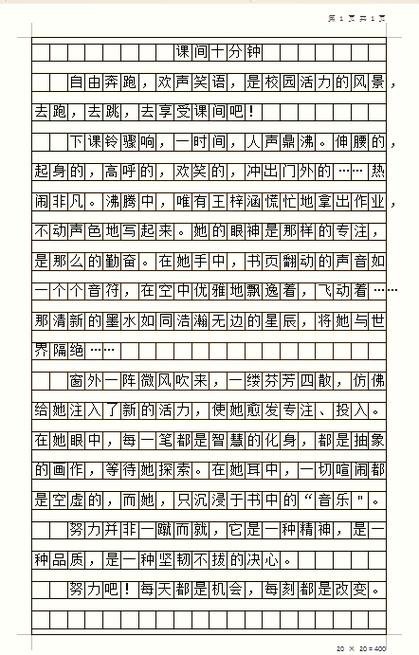 第 1 页 共 1 页
课间十分钟
自由奔跑，欢声笑语，是校园活力的风景，
去跑，去跳，去享受课间吧！
下课铃骤响，一时间，人声鼎沸。伸腰的，
起身的，高呼的，欢笑的，冲出门外的……热
闹非凡。沸腾中，唯有王梓涵慌忙地拿出作业，
不动声色地写起来。她的眼神是那样的专注，
是那么的勤奋。在她手中，书页翻动的声音如
一个个音符，在空中优雅地飘逸着，飞动着……
那清新的墨水如同浩瀚无边的星辰，将她与世
界隔绝……
窗外一阵微风吹来，一缕芬芳四散，仿佛
给她注入了新的活力，使她愈发专注、投入。
在她眼中，每一笔都是智慧的化身，都是抽象
的画作，等待她探索。在她耳中，一切喧闹都
是空虚的，而她，只沉浸于书中的“音乐"。
努力并非一蹴而就，它是一种精神，是一
种品质，是一种坚韧不拔的决心。
努力吧！每天都是机会，每刻都是改变。
20 × 20=400